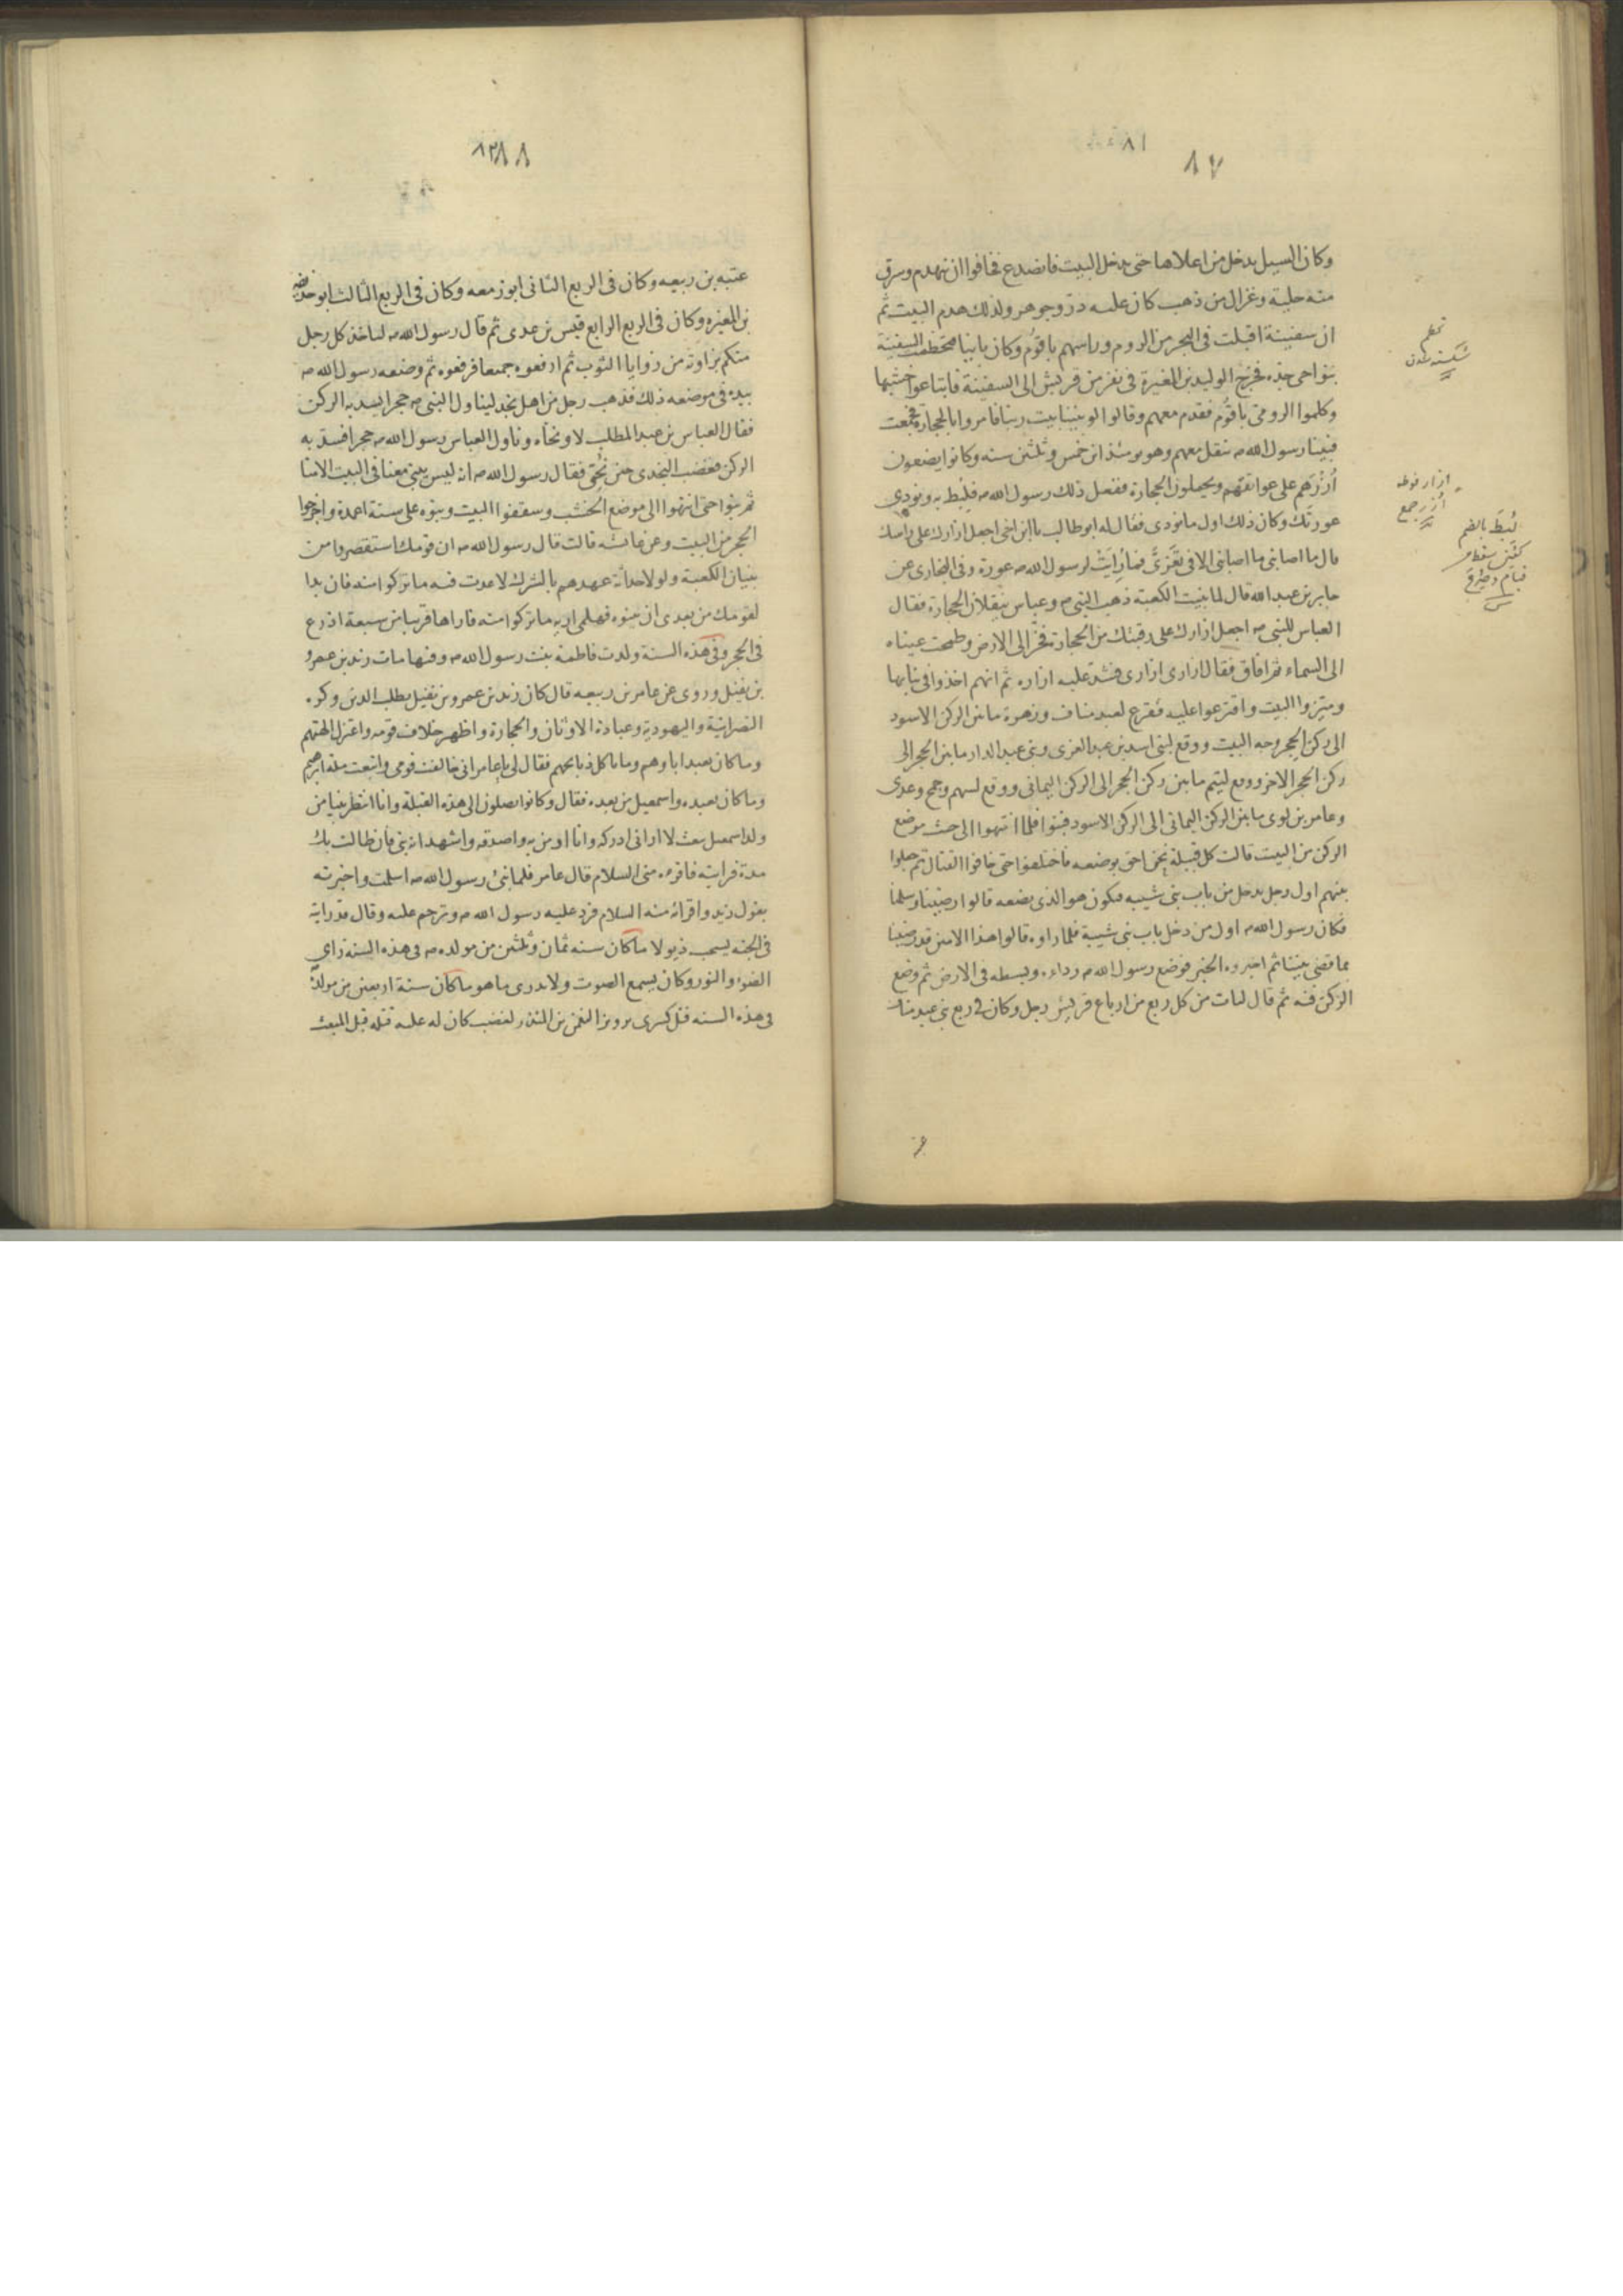 ٨١
٨٧
وكان السيل يدخل من اعلاها حتى يدخل البيت فانصدع فخافوا ان ينهدم وسرق
منه حلية وغزال من ذهب كان عليه در وجوهر ولذلك هدم البيت ثم
ان سفينة اقبلت فى البحر من الروم وراسهم باقوم وكان بانيا فتحطمت السفينة
بنواحى جده فخرج الوليد بن المغيرة فى نفر من قريش الى السفينة فابتاعوا خشبها
وكلموا الرومى باقوم فقدم معهم وقالوا لو بنينا بيت ربنا فامروا بالحجارة فجمعت
فبينا رسول الله ص ينقل معهم وهو يومئذ ابن خمس وثلثين سنه وكانوا يضعون
اُزُرَهم على عواتقهم ويحملون الحجارة ففعل ذلك رسول الله ص فلُبِط به ونودى
عورتَك وكان ذلك اول ما نودى فقال له ابو طالب يا ابن اخى اجعل ازارك على راسك
قال ما اصابنى ما اصابنى الا فى تَعَرِّىَّ فما رُاِيَتْ لرسول الله ص عورة وفى البخارى عن
جابر بن عبد الله قال لما بنيت الكعبة ذهب النبى ص وعباس ينقلان الحجارة فقال
العباس للنبى ص اجعل ازارك على رقبتك من الحجارة فخرّ الى الارض وطمحت عيناه
الى السماء ثم افاق فقال ازارى ازارى فشد عليه ازاره ثم انهم اخذوا فى بنائها
وميزوا البيت واقترعوا عليه فقرع لعبد مناف وزهرة ما بين الركن الاسود
الى ركن الحجر وجه البيت ووقع لبنى اسد بن عبد العزى وبنى عبد الدار ما بين الحجر الى
ركن الحجر الاخر ووقع لتيم ما بين ركن الحجر الى الركن اليمانى ووقع لسهم وجمح وعدى
وعامر بن لوى ما بين الركن اليمانى الى الركن الاسود فبنوا فلما انتهوا الى حيث موضع
الركن من البيت قالت كل قبيلة نحن احق بوضعه فاختلفوا حتى خافوا القتال ثم جعلوا
بينهم اول رجل يدخل من باب بنى شيبه فيكون هو الذى يضعه قالوا رضينا وسلمنا
فكان رسول الله ص اول من دخل باب بنى شيبة فلما راوه قالوا هذا الامين قد رضينا
بما قضى بيننا ثم اخبروه الخبر فوضع رسول الله ص رداءه وبسطه فى الارض ثم وضع
الركن فيه ثم قال ليات من كل ربع من ارباع قريش رجل وكان فى ربع بنى عبد مناف
تحطم
شكسته شدن
ازار فوطه
اُزُر جمع
لُبِطَ بالضم
سقط من
قيام وصُرِعَ
٨٨
عتبه بن ربيعه وكان فى الربع الثانى ابو زمعه وكان فى الربع الثالث ابو حذيفه
بن المغيره وكان فى الربع الرابع قيس بن عدى ثم قال رسول الله ص لياخذ كل رجل
منكم بزاوية من زوايا الثوب ثم ارفعوه جميعا فرفعوه ثم وضعه رسول الله ص
بيده فى موضعه ذلك فذهب رجل من اهل نجد ليناول النبى ص حجرا يسد به الركن
فقال العباس بن عبد المطلب لا ونحّاه وناول العباس رسول الله ص حجرا فسد به
الركن فغضب النجدى حين نُحِّىَ فقال رسول الله ص انه ليس يبنى معنا فى البيت الا منا
ثم بنوا حتى انتهوا الى موضع الخشب وسقفوا البيت وبنوه على ستة اعمدة واخرجوا
الحجر من البيت وعن عائشه قالت قال رسول الله ص ان قومك استقصروا من
بنيان الكعبة ولولا حداثة عهدهم بالشرك لاعدت فيه ما تركوا منه فان بدا
لقومك من بعدى ان يبنوه فهلمى اريه ما تركوا منه فاراها قريبا من سبعة اذرع
فى الحجر وفى هذه السنة ولدت فاطمة بنت رسول الله ص وفيها مات زيد بن عمرو
بن نفيل وروى عن عامر بن ربيعه قال كان زيد بن عمرو بن نفيل يطلب الدين وكره
النصرانية واليهودية وعبادة الاوثان والحجارة واظهر خلاف قومه واعتزل الهتهم
وما كان يعبد اباوهم وما ياكل ذبائحهم فقال لى يا عامر انى خالفت قومى واتبعت ملة ابرهيم
وما كان يعبده واسمعيل من بعده فقال وكانوا يصلون الى هذه القبلة وانا انتظر نبيا من
ولد اسمعيل يبعث لا ارانى ادركه وانا اومن به واصدقه واشهد انه نبى فان طالت بك
مدة فرايته فاقرءه منى السلام قال عامر فلما نبئ رسول الله ص اسلمت واخبرته
بقول زيد واقرائه منه السلام فرد عليه رسول الله ص وترحم عليه وقال قد رايته
فى الجنه يسحب ذيولا ما كان سنه ثمان وثلثين من مولده ص فى هذه السنة راى
الضوء والنور وكان يسمع الصوت ولا يدرى ما هو ما كان سنة اربعين من مولده
فى هذه السنه قتل كسرى برويز النعمن بن المنذر لغضب كان له عليه قتله قبل المبعث